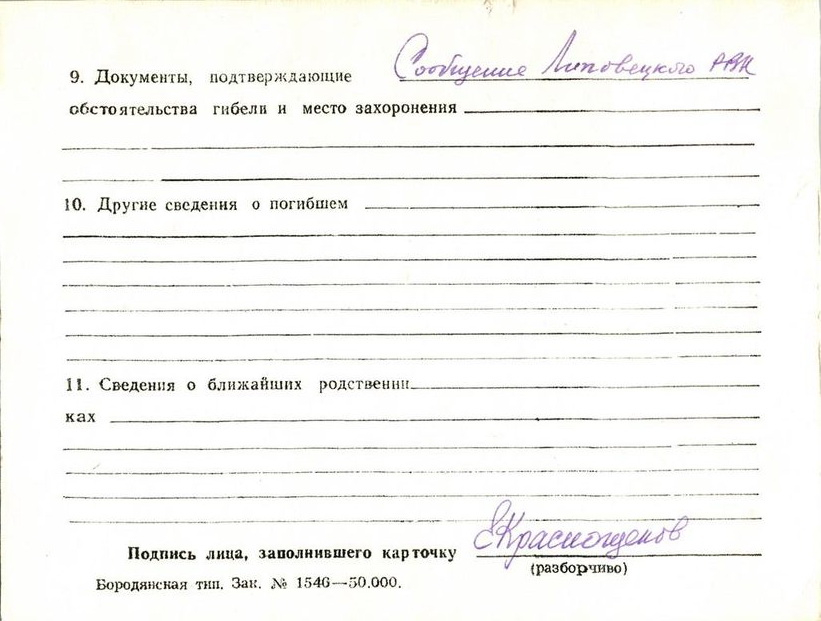 Сообщение Липовецкого РВК
9. Документы, подтверждающие
обстоятельства гибели и место захоронения
10. Другие сведения о погибшем
11. Сведения о ближайших родственни
ках
Краснощеков
Подпись лица, заполнившего карточку
(разборчиво)
Бородянская тип. Зак. № 1546—50.000.